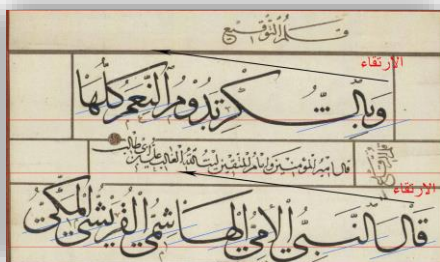 قلم التوقيع
الارتقاء
وبالشكر تدوم النعم كلها
قال أمير المؤمنين وإمام المتقين ليث الله الغالب علي بن أبي طالب
الارتقاء
قال النبي الأمي الهاشمي القريشي المكي